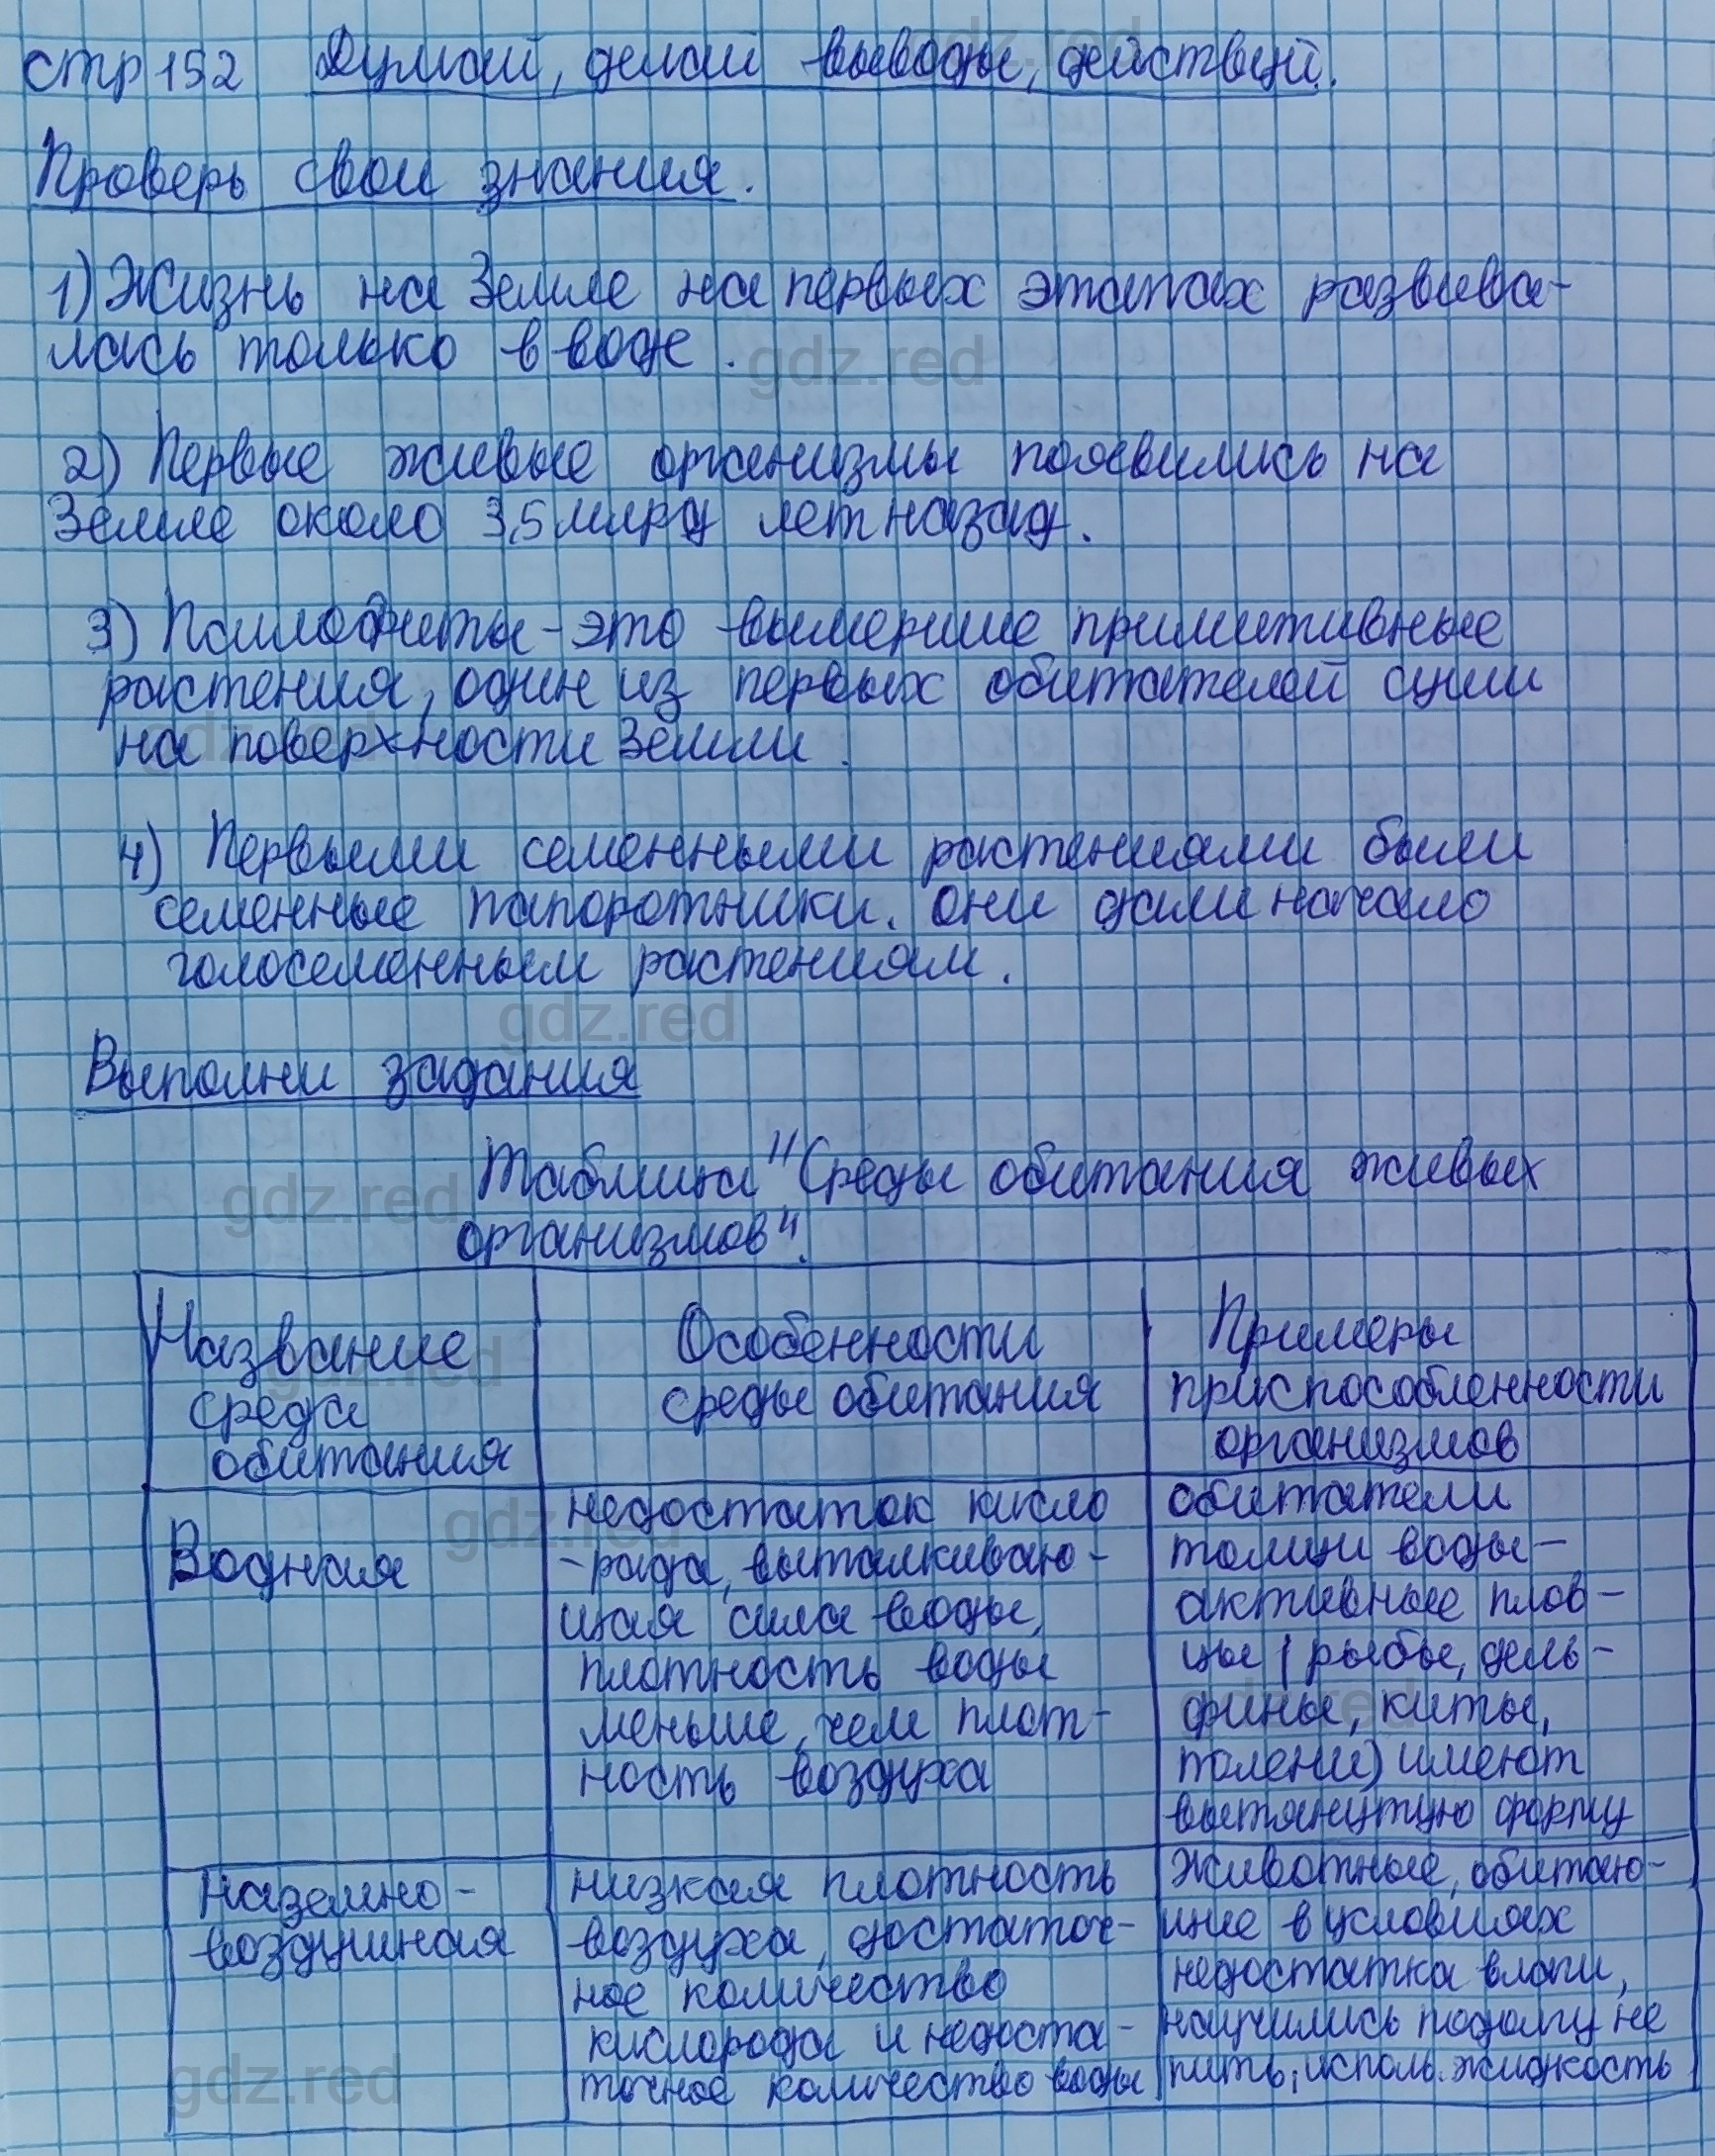 стр 152 Думай, делай выводы, действуй.
Проверь свои знания.
1) Жизнь на Земле на первых этапах развива-
лась только в воде.
2) Первые живые организмы появились на
Земле около 3,5 млрд лет назад.
3) Псилофиты - это вымершие примитивные
растения, один из первых обитателей суши
на поверхности Земли.
4) Первыми семенными растениями были
семенные папоротники. Они дали начало
голосеменным растениям.
Выполни задания
Таблица "Среды обитания живых
организмов".
Название
среда
обитания
Особенности
среды обитания
Примеры
приспособленности
организмов
Водная
недостаток кисло
-рода, выталкиваю-
щая сила воды,
плотность воды
меньше, чем плот-
ность воздуха
обитатели
толщи воды -
активные плов-
цы (рыбы, дель-
фины, киты,
тюлени) имеют
вытянутую форму
Наземно-
воздушная
низкая плотность
воздуха, достаточ-
ное количество
кислорода и недоста-
точное количество воды
Животные, обитаю-
щие в условиях
недостатка влаги,
научились подолгу не
пить, использ. жидкость
gdz.red
gdz.red
gdz.red
gdz.red
gdz.red
gdz.red
gdz.red
gdz.red
gdz.red